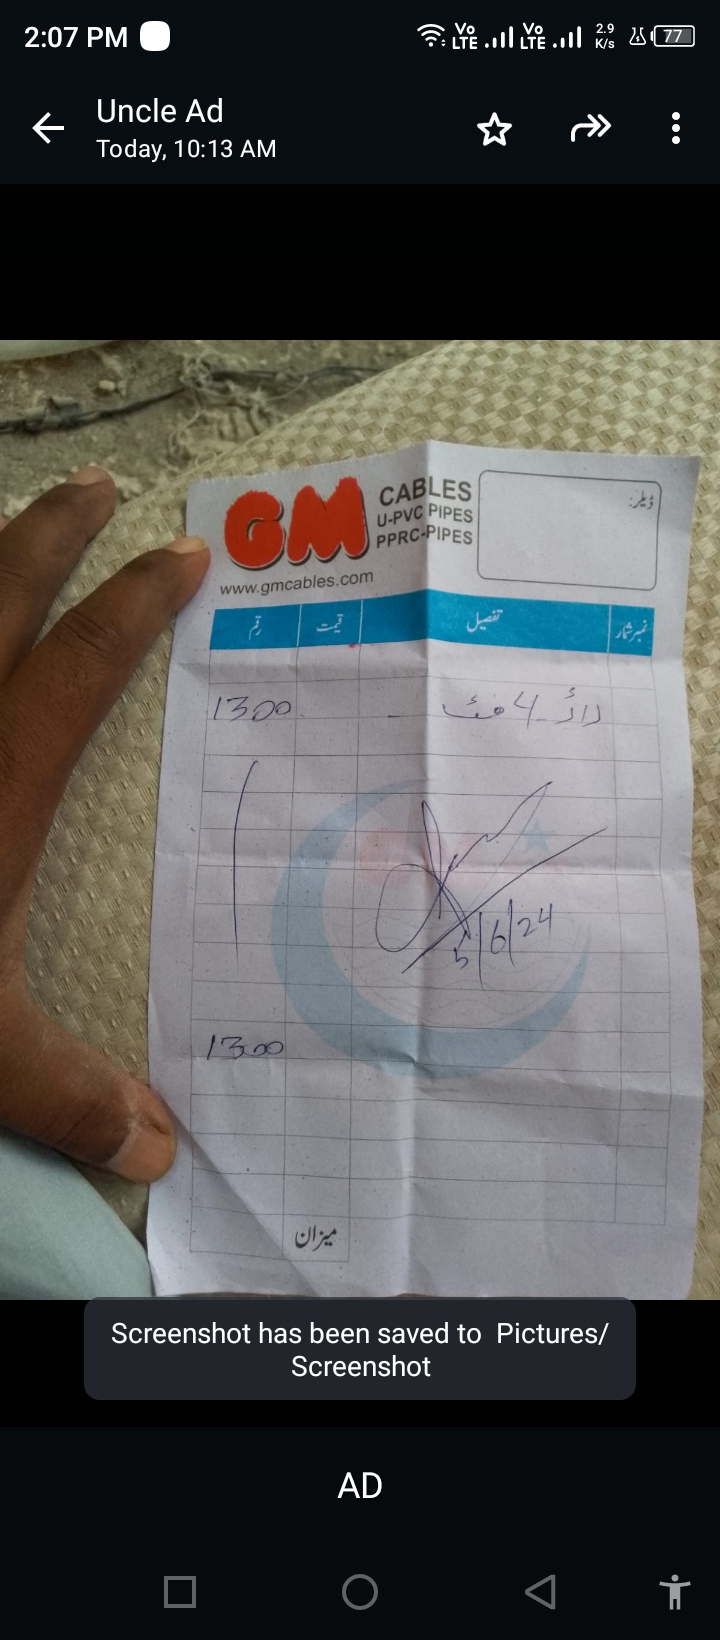 2:07 PM Vo LTE Vo LTE 2.9 K/s 77
Uncle Ad
Today, 10:13 AM
GM CABLES
U-PVC PIPES
PPRC-PIPES
ڈیلر:
www.gmcables.com
نمبر شمار تفصیل قیمت رقم
راڈ 4 فٹ 1300
5/6/24
1300
میزان
Screenshot has been saved to Pictures/
Screenshot
AD